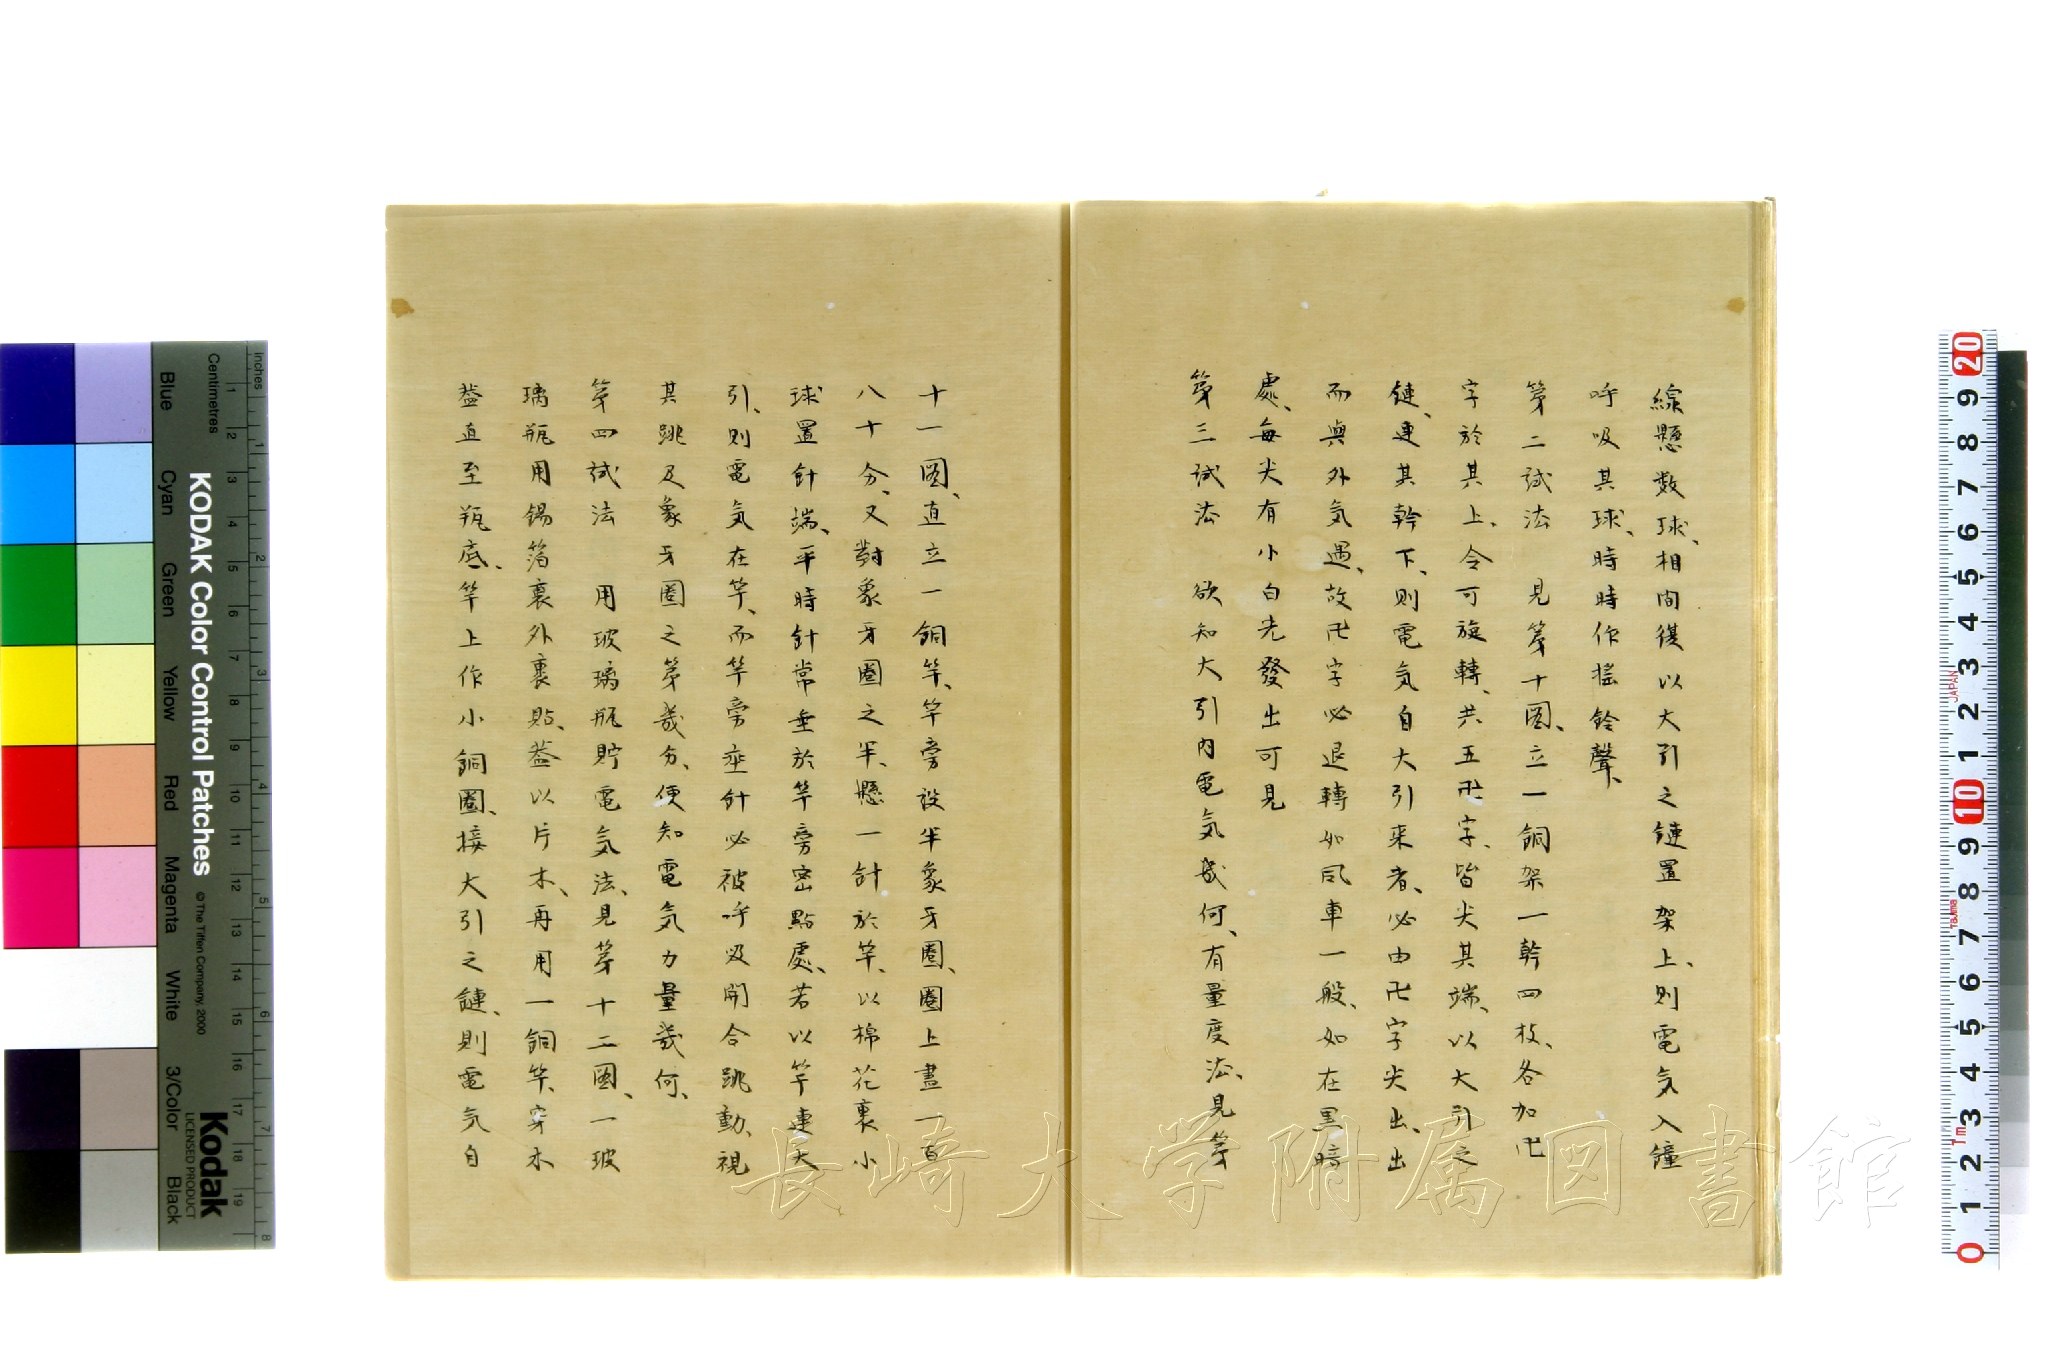 線懸数球、相間後以大引之鏈置架上、則電気入鐘
呼吸其球、時時作搖鈴聲、
第二試法　見第十圖、立一銅架一幹四枝、各加卍
字於其上、令可旋轉、共五卍字、皆尖其端、以大引之
鏈、連其幹下、則電気自大引来者、必由卍字尖出、出
而與外気遇、故卍字必退轉如風車一般、如在黑暗
處、每尖有小白光發出可見
第三試法　欲知大引内電気幾何、有量度法、見第
十一圖、直立一銅竿、竿旁設半象牙圈、圈上畫一百
八十分、又對象牙圈之半、懸一針於竿、以棉花裹小
球置針端、平時針常垂於竿旁密點處、若以竿連大
引、則電気在竿、而竿旁垂針必被呼吸開合跳動、視
其跳及象牙圈之第幾分、便知電気力量幾何、
第四試法　用玻璃瓶貯電気法、見第十二圖、一玻
璃瓶用錫箔裏外裹貼、蓋以片木、再用一銅竿、穿木
蓋直至瓶底、竿上作小銅圈、接大引之鏈、則電気自
長崎大学附属図書館
KODAK Color Control Patches
© The Tiffen Company, 2000
Kodak
LICENSED PRODUCT
Centimetres
Inches
Blue
Cyan
Green
Yellow
Red
Magenta
White
3/Color
Black
1 2 3 4 5 6 7 8 9 10 11 12 13 14 15 16 17 18 19
1 2 3 4 5 6 7 8
0 1 2 3 4 5 6 7 8 9 10 1 2 3 4 5 6 7 8 9 20
JAPAN
Tajima
1m